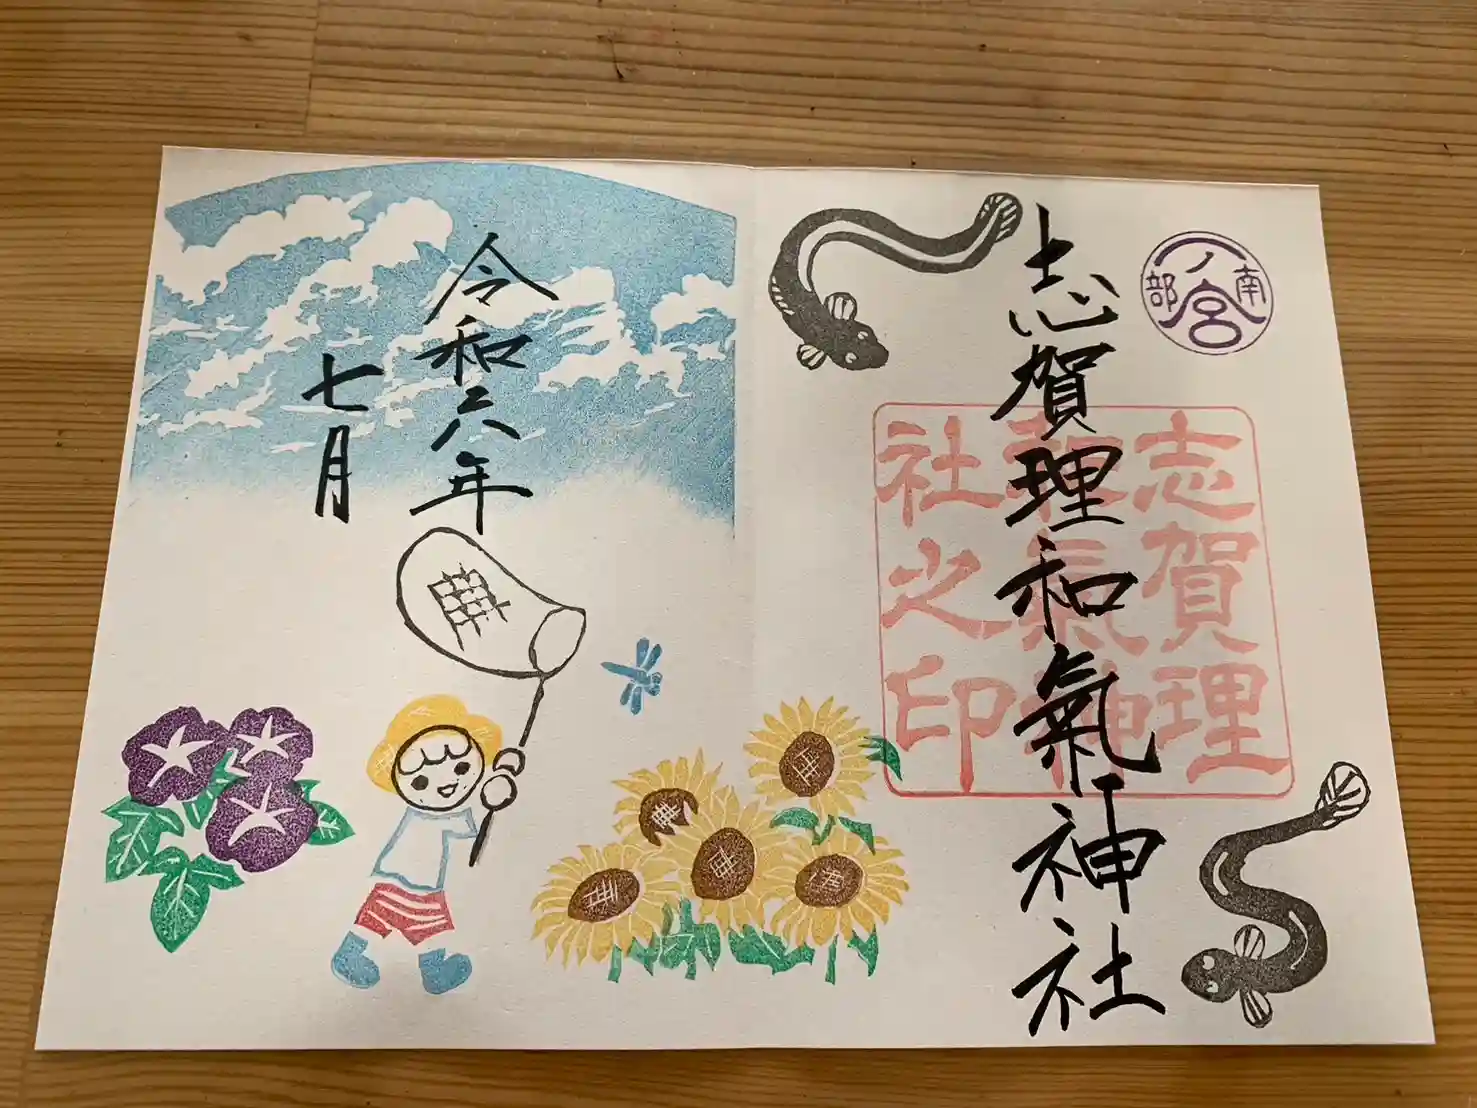 南部
一ノ宮
志賀理和氣神社
志賀理
和氣神
社之印
令和六年
七月